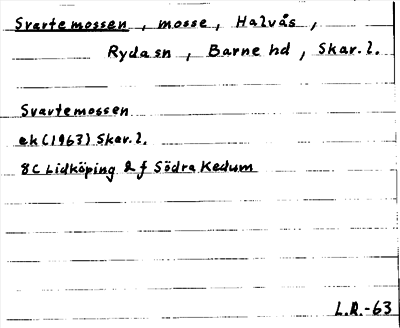 Svartemossen, mosse, Halvås,
Ryda sn, Barne hd, Skar. l.
Svartemossen
ek (1963) Skar. l.
8C Lidköping 2 f Södra Kedum
L.R.-63